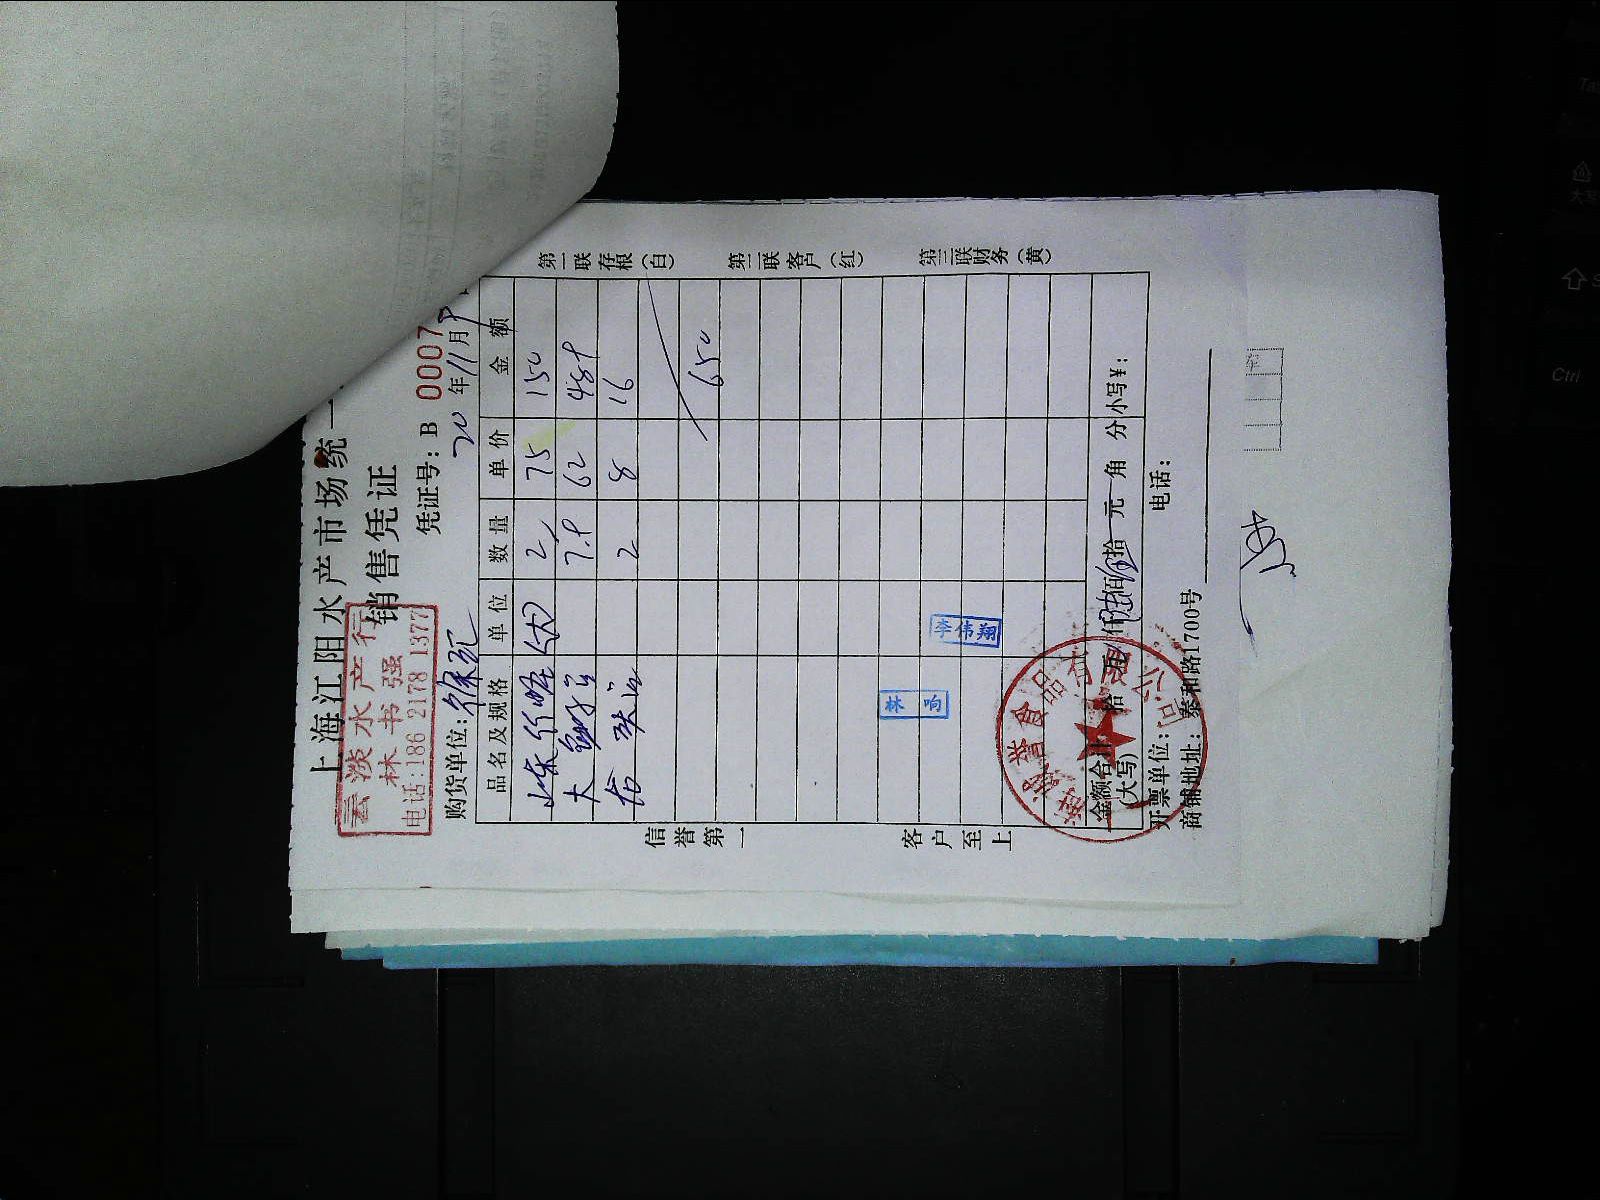 上海江阳水产市场统一
销售凭证
云淡水产行
林书强
电话:186 2178 1377
凭证号: B 0007
20 年 11 月
购货单位:
品名及规格 单位 数量 单价 金额
2 75 150
大 7.8 62 484
2 8 16
650
第一联存根(白)
第二联客户(红)
第三联财务(黄)
信誉第一
客户至上
李伟翔
林响
金额合计
(大写) 拾 万 仟 陆 佰 伍 拾 元 角 分 小写¥:
开票单位: 电话:
商铺地址: 泰和路1700号
誉食品有限公司
Ctrl